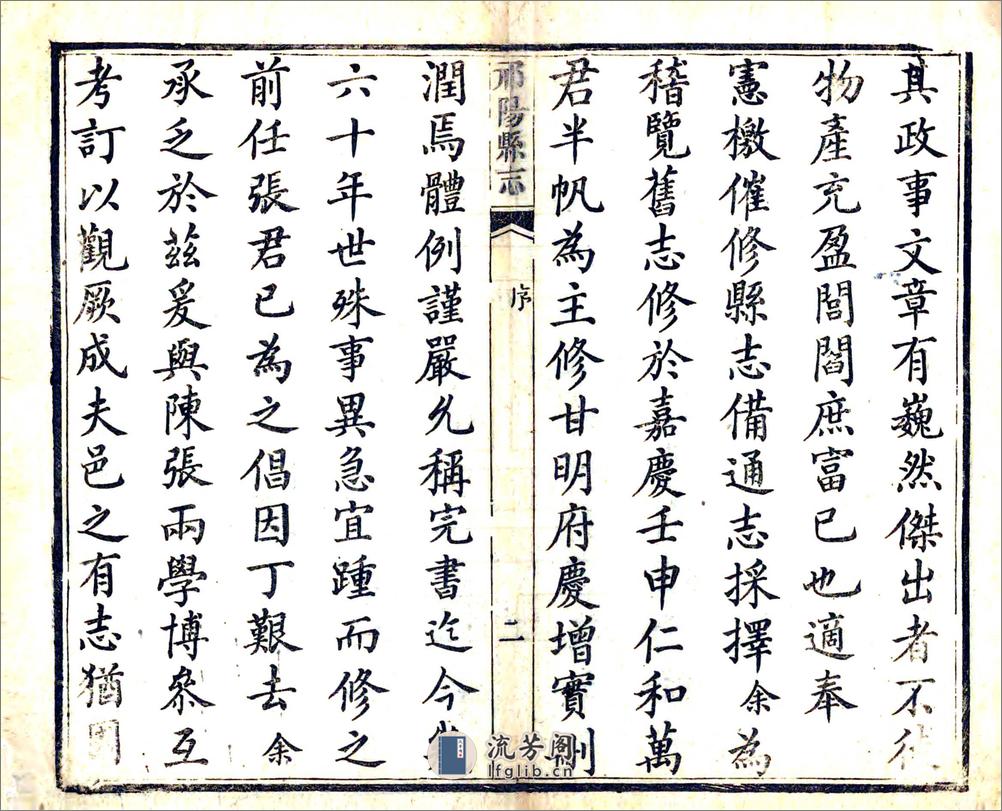 其政事文章有巍然傑出者不徒
物產充盈閭閻庶富已也適奉
憲檄催修縣志備通志採擇余為
稽覽舊志修於嘉慶壬申仁和萬
君半帆為主修甘明府慶增實刪
祁陽縣志
序
二
潤焉體例謹嚴允稱完書迄今
六十年世殊事異急宜踵而修之
前任張君已為之倡因丁艱去余
承乏於茲爰與陳張兩學博叅互
考訂以觀厥成夫邑之有志猶國
流芳阁
lfglib.cn